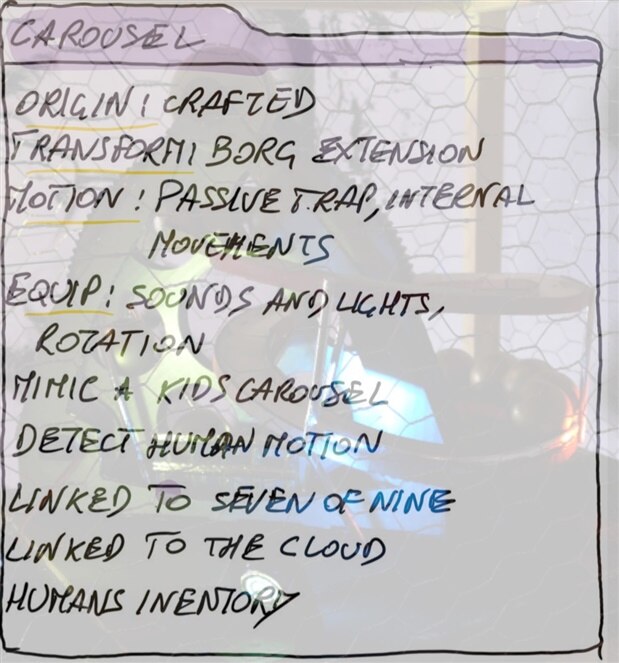 CAROUSEL
ORIGIN: CRAFTED
TRANSFORM: BORG EXTENSION
MOTION: PASSIVE TRAP, INTERNAL
MOVEMENTS
EQUIP: SOUNDS AND LIGHTS,
ROTATION
MIMIC A KIDS CAROUSEL
DETECT HUMAN MOTION
LINKED TO SEVEN OF NINE
LINKED TO THE CLOUD
HUMANS INENTORY